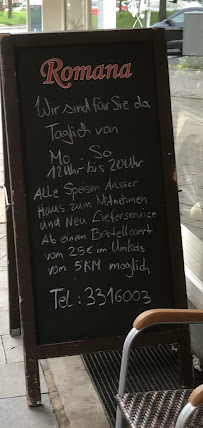 Romana
Wir sind für Sie da
Täglich von
Mo - So
12 Uhr bis 20 Uhr
Alle Speisen Ausser
Haus zum Mitnehmen
und Neu Lieferservice
Ab einem Bestellwert
vom 25€ im Umkreis
von 5 KM möglich
Tel: 3316003